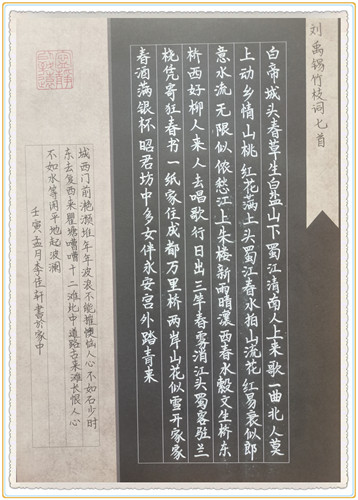 刘禹锡竹枝词七首
白帝城头春草生白盐山下蜀江清南人上来歌一曲北人莫
上动乡情山桃红花满上头蜀江春水拍山流花红易衰似郎
意水流无限似侬愁江上朱楼新雨晴瀼西春水縠文生桥东
桥西好柳人来人去唱歌行日出三竿春雾消江头蜀客驻兰
桡凭寄狂春书一纸家住成都万里桥两岸山花似雪开家家
春酒满银杯昭君坊中多女伴永安宫外路青来
城西门前滟滪堆年年波浪不能摧懊恼人心不如石少时
东去复西来瞿塘嘈嘈十二滩此中道路古来滩长恨人心
不如水等闲平地起波澜
壬寅孟月李佳轩書於家中